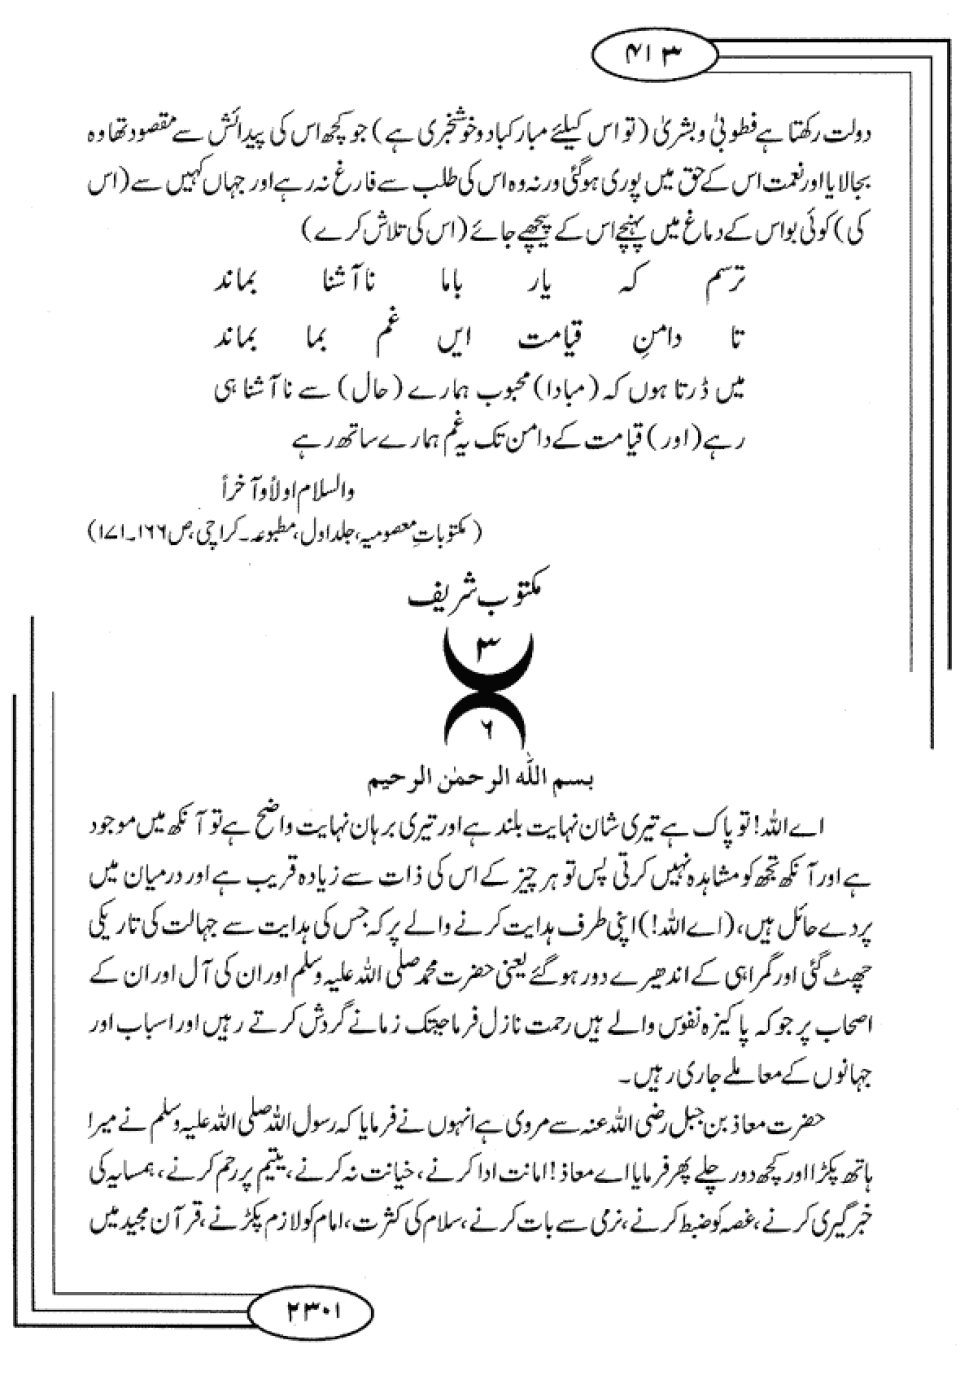 ۴۱۳
دولت رکھتا ہے فطوبیٰ و بشریٰ (تو اس کیلئے مبارکباد و خوشخبری ہے) جو کچھ اس کی پیدائش سے مقصود تھا وہ
بجا لایا اور نعمت اس کے حق میں پوری ہوگئی ورنہ وہ اس کی طلب سے فارغ نہ رہے اور جہاں کہیں سے (اس
کی) کوئی بو اس کے دماغ میں پہنچے اس کے پیچھے جائے (اس کی تلاش کرے)
ترسم کہ یار باما نا آشنا بماند
تا دامنِ قیامت ایں غم بما بماند
میں ڈرتا ہوں کہ (مبادا) محبوب ہمارے (حال) سے نا آشنا ہی
رہے (اور) قیامت کے دامن تک یہ غم ہمارے ساتھ رہے
والسلام اولاً و آخراً
(مکتوباتِ معصومیہ، جلد اول، مطبوعہ۔ کراچی، ص ۱۶۶۔۱۷۱)
مکتوب شریف
۳
۶
بسم اللّٰه الرحمٰن الرحیم
اے اللہ! تو پاک ہے تیری شان نہایت بلند ہے اور تیری برہان نہایت واضح ہے تو آنکھ میں موجود
ہے اور آنکھ تجھ کو مشاہدہ نہیں کرتی پس تو ہر چیز کے اس کی ذات سے زیادہ قریب ہے اور درمیان میں
پردے حائل ہیں، (اے اللہ!) اپنی طرف ہدایت کرنے والے پر کہ جس کی ہدایت سے جہالت کی تاریکی
چھٹ گئی اور گمراہی کے اندھیرے دور ہوگئے یعنی حضرت محمد صلی اللہ علیہ وسلم اور ان کی آل اور ان کے
اصحاب پر جو کہ پاکیزہ نفوس والے ہیں رحمت نازل فرما جبتک زمانے گردش کرتے رہیں اور اسباب اور
جہانوں کے معاملے جاری رہیں۔
حضرت معاذ بن جبل رضی اللہ عنہ سے مروی ہے انہوں نے فرمایا کہ رسول اللہ صلی اللہ علیہ وسلم نے میرا
ہاتھ پکڑا اور کچھ دور چلے پھر فرمایا اے معاذ! امانت ادا کرنے، خیانت نہ کرنے، یتیم پر رحم کرنے، ہمسایہ کی
خبر گیری کرنے، غصہ کو ضبط کرنے، نرمی سے بات کرنے، سلام کی کثرت، امام کو لازم پکڑنے، قرآن مجید میں
۲۳۰۱